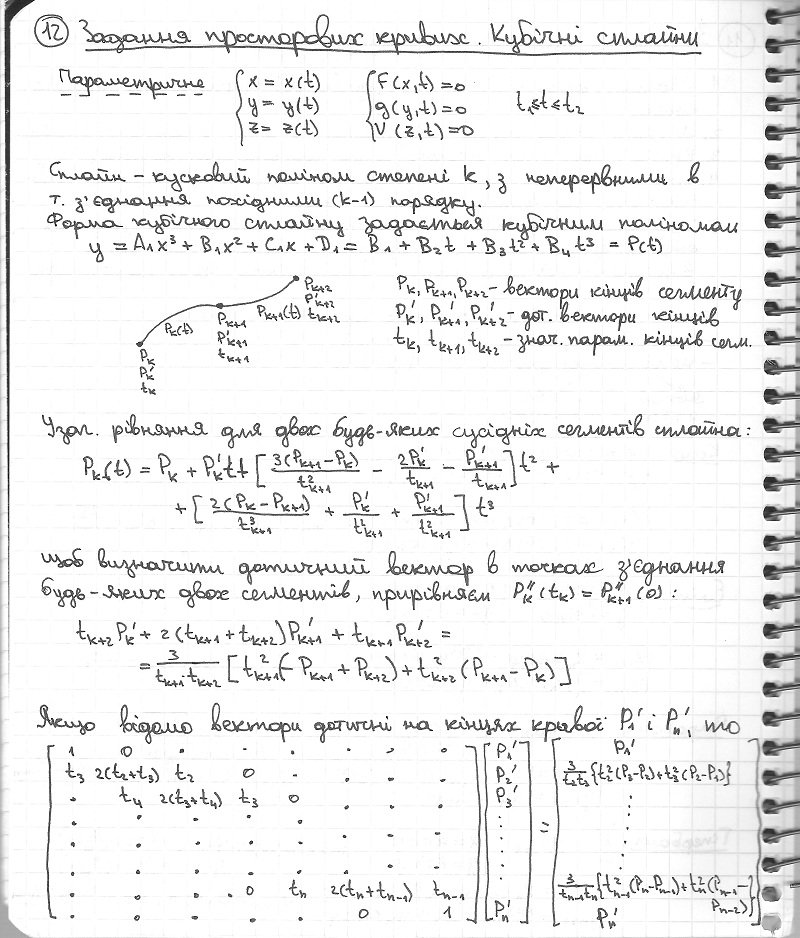 12 Задання просторових кривих. Кубічні сплайни
Параметричне { x = x(t) { f(x,t)=0
y = y(t) g(y,t)=0 t₁≤t≤t₂
z = z(t) V(z,t)=0
Сплайн – кусковий поліном степені k, з неперервними в
т. з'єднання похідними (k-1) порядку.
Форма кубічного сплайну задається кубічним поліномом
y = A₁x³ + B₁x² + C₁x + D₁ = B₁ + B₂t + B₃t² + B₄t³ = P(t)
Pₖ(t) Pₖ₊₁(t)
Pₖ Pₖ₊₁ Pₖ₊₂
P'ₖ P'ₖ₊₁ P'ₖ₊₂
tₖ tₖ₊₁ tₖ₊₂
Pₖ, Pₖ₊₁, Pₖ₊₂ – вектори кінців сегменту
P'ₖ, P'ₖ₊₁, P'ₖ₊₂ – дот. вектори кінців
tₖ, tₖ₊₁, tₖ₊₂ – знач. парам. кінців сегм.
Узаг. рівняння для двох будь-яких сусідніх сегментів сплайна:
Pₖ(t) = Pₖ + P'ₖt + [3(Pₖ₊₁-Pₖ)/t²ₖ₊₁ - 2P'ₖ/tₖ₊₁ - P'ₖ₊₁/tₖ₊₁] t² +
+ [2(Pₖ-Pₖ₊₁)/t³ₖ₊₁ + P'ₖ/t²ₖ₊₁ + P'ₖ₊₁/t²ₖ₊₁] t³
щоб визначити дотичний вектор в точках з'єднання
будь-яких двох сегментів, прирівняєм P''ₖ(tₖ) = P''ₖ₊₁(0):
tₖ₊₂P'ₖ + 2(tₖ₊₁+tₖ₊₂)P'ₖ₊₁ + tₖ₊₁P'ₖ₊₂ =
= 3/(tₖ₊₁·tₖ₊₂) [t²ₖ₊₁(-Pₖ₊₁+Pₖ₊₂) + t²ₖ₊₂(Pₖ₊₁-Pₖ)]
Якщо відомо вектори дотичні на кінцях кривої P₁' і Pₙ', то
1 0 . . . . . . P₁' P₁'
t₃ 2(t₂+t₃) t₂ 0 . . . . P₂' 3/(t₂t₃){t₂²(P₃-P₂)+t₃²(P₂-P₁)}
. t₄ 2(t₃+t₄) t₃ 0 . . . P₃' .
. . . . . . . . =
. . . . 0 tₙ 2(tₙ+tₙ₋₁) tₙ₋₁ . 3/(tₙ₋₁tₙ){t²ₙ₋₁(Pₙ-Pₙ₋₁)+t²ₙ(Pₙ₋₁-
Pₙ₋₂)}
. . . . . . 0 1 Pₙ' Pₙ'